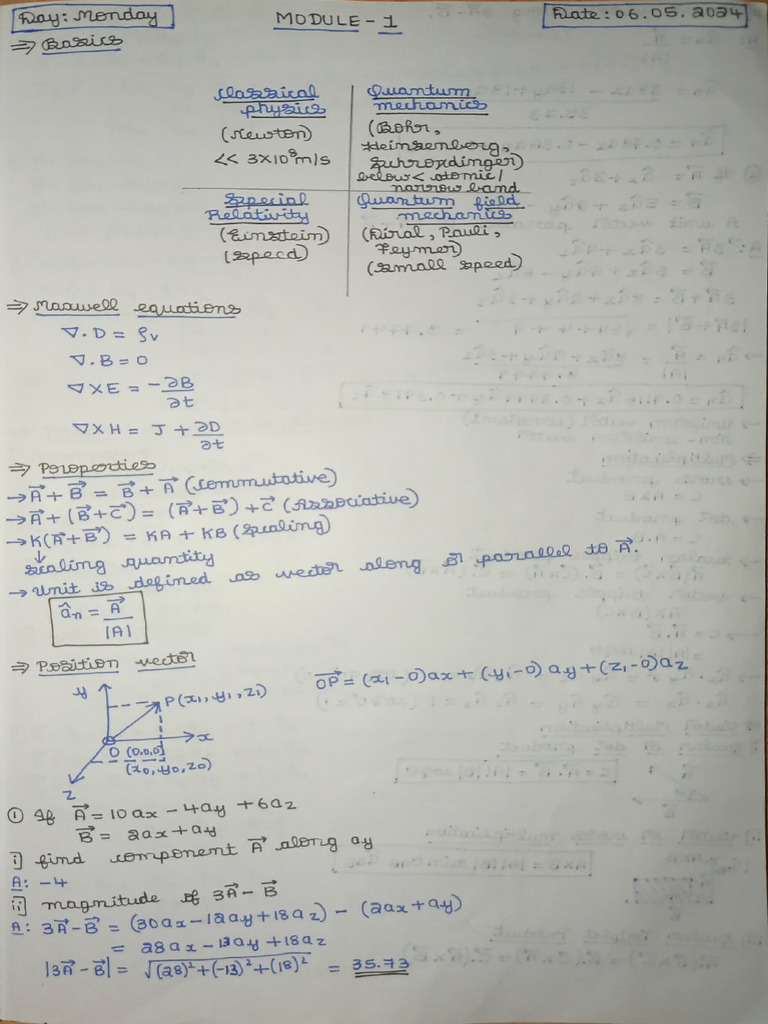 Day: Monday
MODULE - 1
Date: 06.05.2024
⇒ Basics
Classical physics
(Newton)
<< 3×10⁸m/s
Quantum mechanics
(Bohr,
Heinsenberg,
Schroxdinger)
below < atomic /
narrow band
Special Relativity
(Einstein)
(speed)
Quantum field mechanics
(Diral, Pauli,
Feymer)
(small speed)
⇒ Maxwell equations
∇.D = ρv
∇.B = 0
∇×E = -∂B/∂t
∇×H = J + ∂D/∂t
⇒ Properties
→ A⃗ + B⃗ = B⃗ + A⃗ (commutative)
→ A⃗ + (B⃗ + C⃗) = (A⃗ + B⃗) + C⃗ (Associative)
→ K(A⃗ + B⃗) = KA + KB (scaling)
↓
scaling quantity
→ Unit is defined as vector along or parallel to A⃗.
â_n = A⃗/|A|
⇒ Position vector
OP⃗ = (x₁-0)ax + (y₁-0)ay + (z₁-0)az
y
P(x₁, y₁, z₁)
x
O (0,0,0)
(x0, y0, z0)
z
① If A⃗ = 10ax - 4ay + 6az
B⃗ = 2ax + ay
i] find component A⃗ along ay
A: -4
ii] magnitude of 3A⃗ - B⃗
A: 3A⃗ - B⃗ = (30ax - 12ay + 18az) - (2ax + ay)
= 28ax - 13ay + 18az
|3A⃗ - B⃗| = √(28)² + (-13)² + (18)² = 35.73